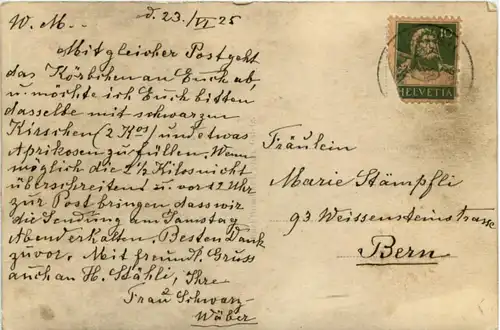 W. M.- d. 23./VI 25
Mit gleicher Post geht
das Körbchen an Euch ab,
u. möchte ich Euch bitten
dasselbe mit schwarzen
Kirschen (2 Kos) und etwas
Aprikosen zu füllen. Wenn
möglich die 2½ Kilos nicht
überschreitend u. vor 12 Uhr
zur Post bringen dass wir
die Sendung am Samstag
Abend erhalten. Besten Dank
zuvor. Mit freundl. Gruss
auch an H. Stähli, Ihre
Frau Schwarz-
Wäber
10
HELVETIA
Fräulein
Marie Stämpfli
93 Weissensteinstrasse
Bern